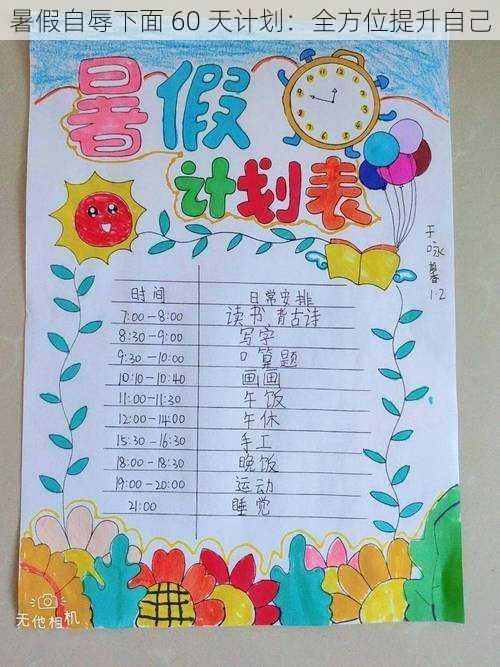 暑假自辱下面 60 天计划：全方位提升自己
暑假
计划表
于咏馨
1.2
时间 日常安排
7:00-8:00 读书 背古诗
8:30-9:00 写字
9:30-10:00 口算题
10:10-10:40 画画
11:00-11:30 午饭
12:00-14:00 午休
15:30-16:30 手工
18:00-18:30 晚饭
19:00-20:00 运动
21:00 睡觉
无他相机